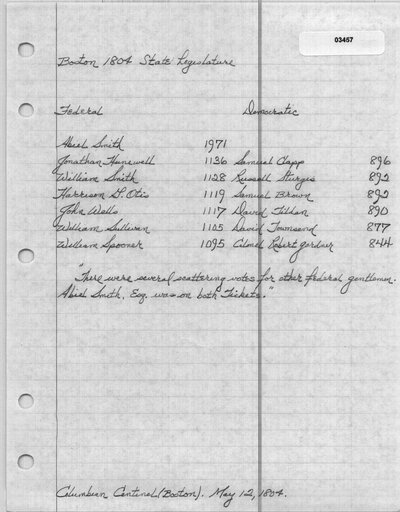 03457
Boston 1804 State Legislature
Federal Democratic
Abiel Smith 1971
Jonathan Hunewell 1136 Samuel Clapp 896
William Smith 1128 Russell Sturgis 892
Harrison G. Otis 1119 Samuel Brown 892
John Wells 1117 David Tilden 890
William Sullivan 1105 David Townsend 877
William Spooner 1095 Colonel Robert Gardner 844
"There were several scattering votes for other federal gentlemen.
Abiel Smith, Esq. was on both Tickets."
Columbian Centinel (Boston). May 12, 1804.